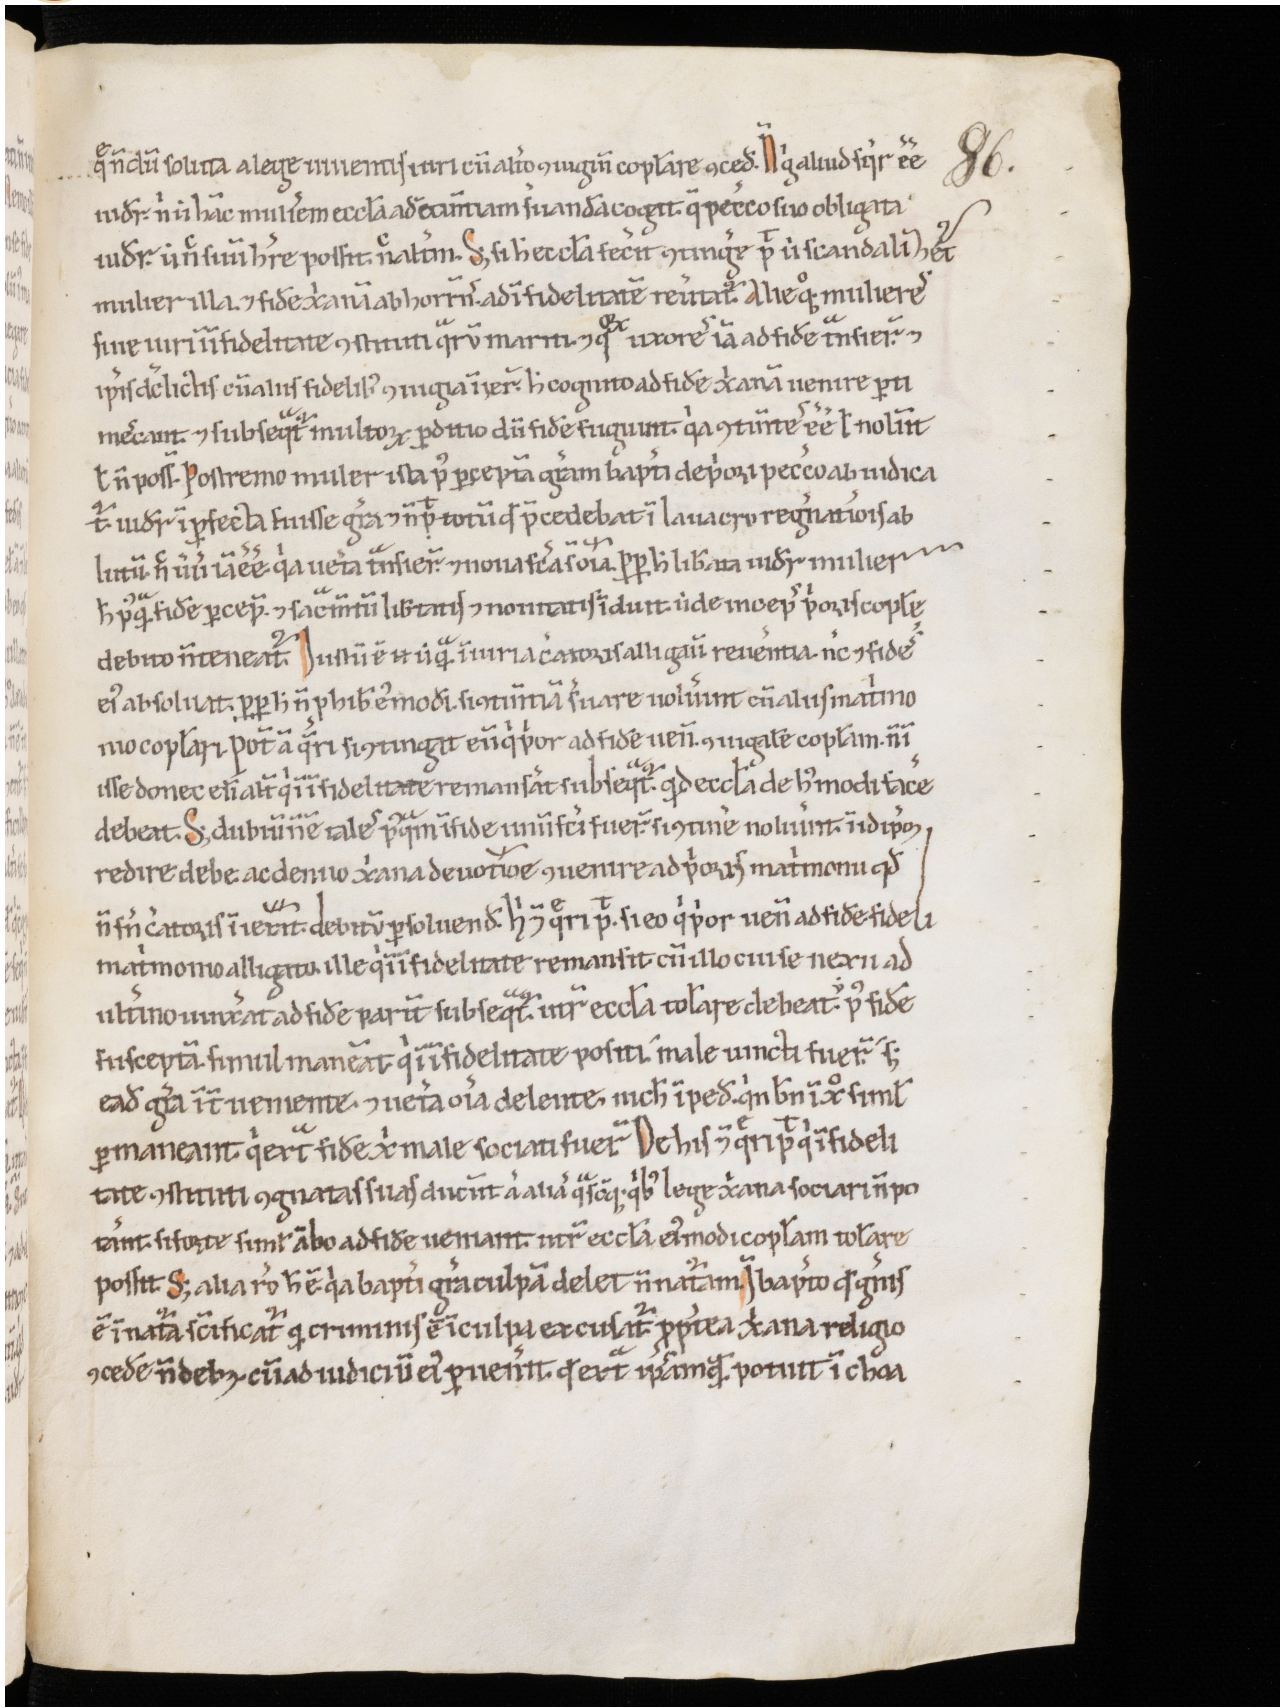 86.
q̄ n̄ dū soluta a lege uiuentis uiri cū alio ꝯiugiū copl̄are ꝯced̄. N̄ g̓ aliud sq̄r ēē
uidr̄. n̓ ū hāc mulierem eccl̄a ad ꝯtin̄tiam s̓uandā cogit. q̄ pecc̄o suo obligata
uidr̄. ū n̄ suū hr̄e possit. n̄ aliū. S; si h̓ eccl̄a fec̓it ꝯting̓e p̄t ū scandaliꝫet̄
mulier illa. ⁊ fidē xp̓ianā abhorrēs. ad īfidelitatē reu̓tat̄. Alie q̄q; muliere᷒
siue uiri ī īfidelitate ꝯstituti q̄rū mariti. ⁊ q̄ꝝ uxore᷒ iā ad fidē t̄nsier̄. ⁊
ip̓is d̓elictis cū aliis fidelib᷒ ꝯiugia īier̄. h̓ cognito ad fidē xp̓ianā uenire p̱ti
mescant. ⁊ subseq̄t̄ multoꝝ p̱ditio dū fidē fugiunt. q̓a ꝯtin̄te᷒ ēē l̄ nolūt
l̄ n̄ poss̄. Postremo mulier ista p᷒ p̱ceptā gr̄am bapt̓i de p̓ori pecc̓o ab iudica
t̄. uidr̄ īp̱fecta fuisse gr̄a. ⁊ n̄ p̄t totū q̓ p̄cedebat ī lauacro reg̓nat̓iōis ab
lutū. n̄ ū ū iā ēē. q̓a uet̓a t̄nsier̄. ⁊ noua fc̄a s̄ oīa. p̱p̱ h̓ lib̓ata uidr̄ mulier
h̓ p᷒q̄ fidē p̱cep̄. ⁊ sac̄m̄tū lib̓tatis ⁊ nouitatis īduit. ūde incep᷒ p̓oris copl̄e
debito n̄ teneat̄. Iustū ē ut ūq̄ īiuria c̓atoris alligauī reu̓entia. n̄c ⁊ fide᷒
ei᷒ absoluat. p̱p̱ h̓ n̄ phib̓ ei᷒modi. si ꝯtin̄tiā s̓uare nolūint cū aliis mat̓imo
nio copl̄ari. Pot̄ ā q̄ri si ꝯtingit eū q̓ p̓or ad fidē uen̄. ꝯiugalē copl̄am. n̄ ī
isse donec eti ālt̓ q̓ ī īfidelitate remans̓at subseq̄t̄. qd̄ eccl̄a de h᷒modi face᷒
debeat. S; dubiū n̄ ē tale᷒ p᷒q̄m ī fide unū fc̓i fuer̄. si ꝯtin̓e nolūint. ū idip̓m
redire debe. ac denuo xp̓iana deuotiōe ꝯuenire ad p̓oris mat̓imonii qd̄
n̄ s̓n̄ c̓atoris īier̄t. debitū p̱soluend̄. h̓ ⁊ q̄ri p̄t. si eo q̓ p̓or uen̄ ad fidē fideli
mat̓imonio alligato. ille q̓ ī īfidelitate remansit cū illo cui se nexu ad
ultimo uinx̓at ad fidē parit̄ subseq̄t̄. utr̄ eccl̄a tol̄are debeat̄ p᷒ fidē
susceptā. simul maneāt. q̓ ī īfidelitate positi male uincti fuer̄. s;
ead̄ gr̄a īt̓ueniente. ⁊ uet̓a oīa delente. nich̓ īped̄. q̓n bn̄ ī xp̓o simul̄
p̱maneant. q̓ ext̄ fidē xp̓i male sociati fuer̄. De his ⁊ q̄ri p̄t q̓ īfideli
tate ꝯstituti ꝯgnatas suas ducūt ā aliā q̄scq̄. q̓b᷒ lege xp̓iana sociari n̄ po
t̓ant. si forte simul̄ ābo ad fidē ueniant. utr̄ eccl̄a ei᷒modi copl̄am tol̄are
possit. S; alia r̄o h̓ ē. q̓a bapt̓i gr̄a culpā delet n̄ nat̄am. S; bapt̓o q̓ g̓nis
ē ī nat̄a sc̓ificat̄. q̓ criminis ē ī culpa excusat̄. p̱p̓tea xp̓iana religio
ꝯcede n̄ debꝫ. cū ad iudiciū ei᷒ p̱uen̓it. q̓ ext̄ ip̓am q̄q̄. potuit ī choa